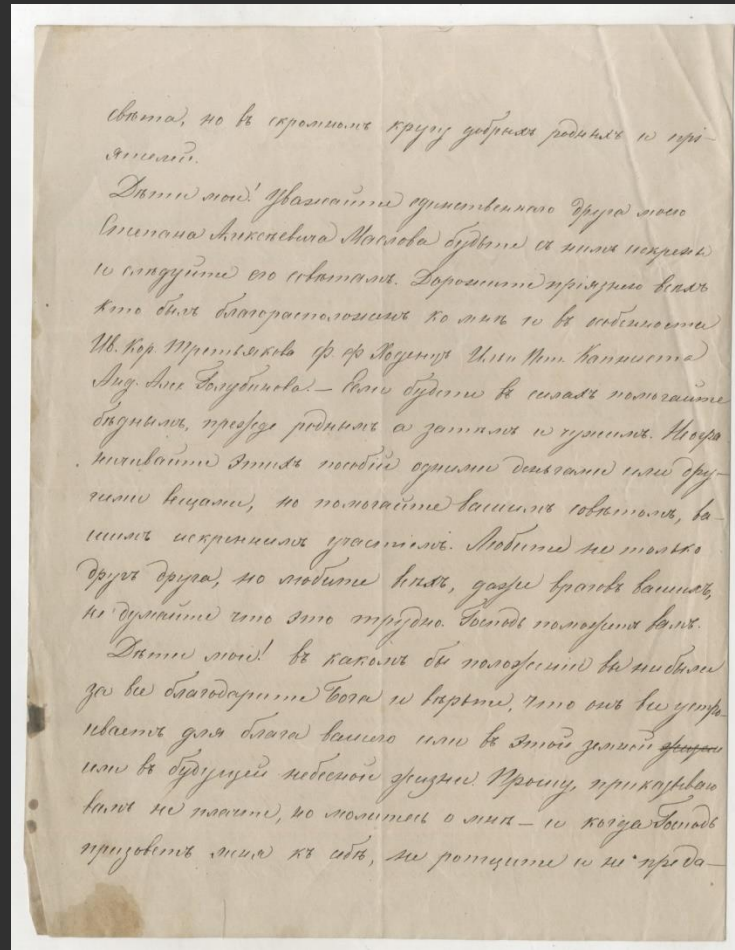 свѣта, но въ скромномъ кругу добрыхъ родныхъ и прі-
ятелей.
Дѣти мои! Уважайте единственнаго друга моего
Степана Алексѣевича Маслова будьте съ нимъ искрены
и слѣдуйте его совѣтамъ. Дорожите пріязнею всѣхъ
кто былъ благорасположенъ ко мнѣ и въ особенности
Ив. Кор. Третьякова Ф Ф Ходенцъ Ильи Пет. Капниста
Анд. Але Голубкова. — Если будете въ силахъ помогайте
бѣднымъ, прежде роднымъ а затѣмъ и чужимъ. Неогра-
ничивайте этихъ пособій одними деньгами или дру-
гими вещами, но помогайте вашимъ совѣтомъ, ва-
шимъ искреннимъ участіемъ. Любите не только
другъ друга, но любите всѣхъ, даже враговъ вашихъ,
не думайте что это трудно. Господь поможетъ вамъ.
Дѣти мои! въ какомъ бы положеніи вы нибыли
за все благодарите Бога и вѣрьте, что онъ все устра-
иваетъ для блага вашего или въ этой земной жизни
или въ будущей небесной жизни. Прошу, приказываю
вамъ не плачте, но молитесь о мнѣ — и когда Господь
призоветъ меня къ себѣ, не ропщите и не преда-